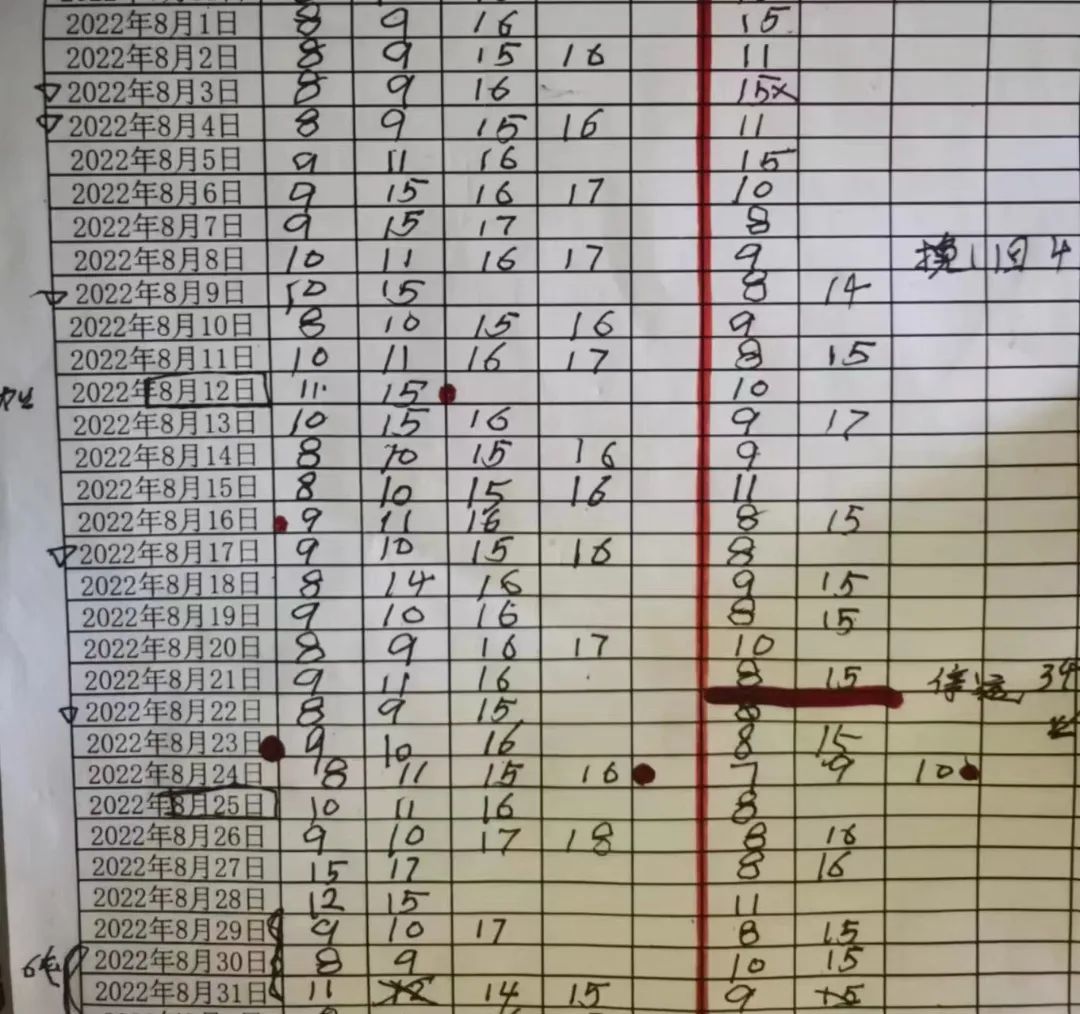 2022年8月1日 8 9 16 15
2022年8月2日 8 9 15 16 11
2022年8月3日 8 9 16 15×
2022年8月4日 8 9 15 16 11
2022年8月5日 9 11 16 15
2022年8月6日 9 15 16 17 10
2022年8月7日 9 15 17 8
2022年8月8日 10 11 16 17 9 11回 4
2022年8月9日 10 15 8 14
2022年8月10日 8 10 15 16 9
2022年8月11日 10 11 16 17 8 15
2022年8月12日 11 15 10
2022年8月13日 10 15 16 9 17
2022年8月14日 8 10 15 16 9
2022年8月15日 8 10 15 16 11
2022年8月16日 9 11 16 8 15
2022年8月17日 9 10 15 16 8
2022年8月18日 8 14 16 9 15
2022年8月19日 9 10 16 8 15
2022年8月20日 8 9 16 17 10
2022年8月21日 9 11 16 8 15 34
2022年8月22日 8 9 15 8
2022年8月23日 9 10 16 8 15
2022年8月24日 18 11 15 16 7 9 10
2022年8月25日 10 11 16 8
2022年8月26日 9 10 17 18 8 16
2022年8月27日 15 17 8 16
2022年8月28日 12 15 11
2022年8月29日 9 10 17 8 15
2022年8月30日 8 9 10 15
2022年8月31日 11 12 14 15 9 15